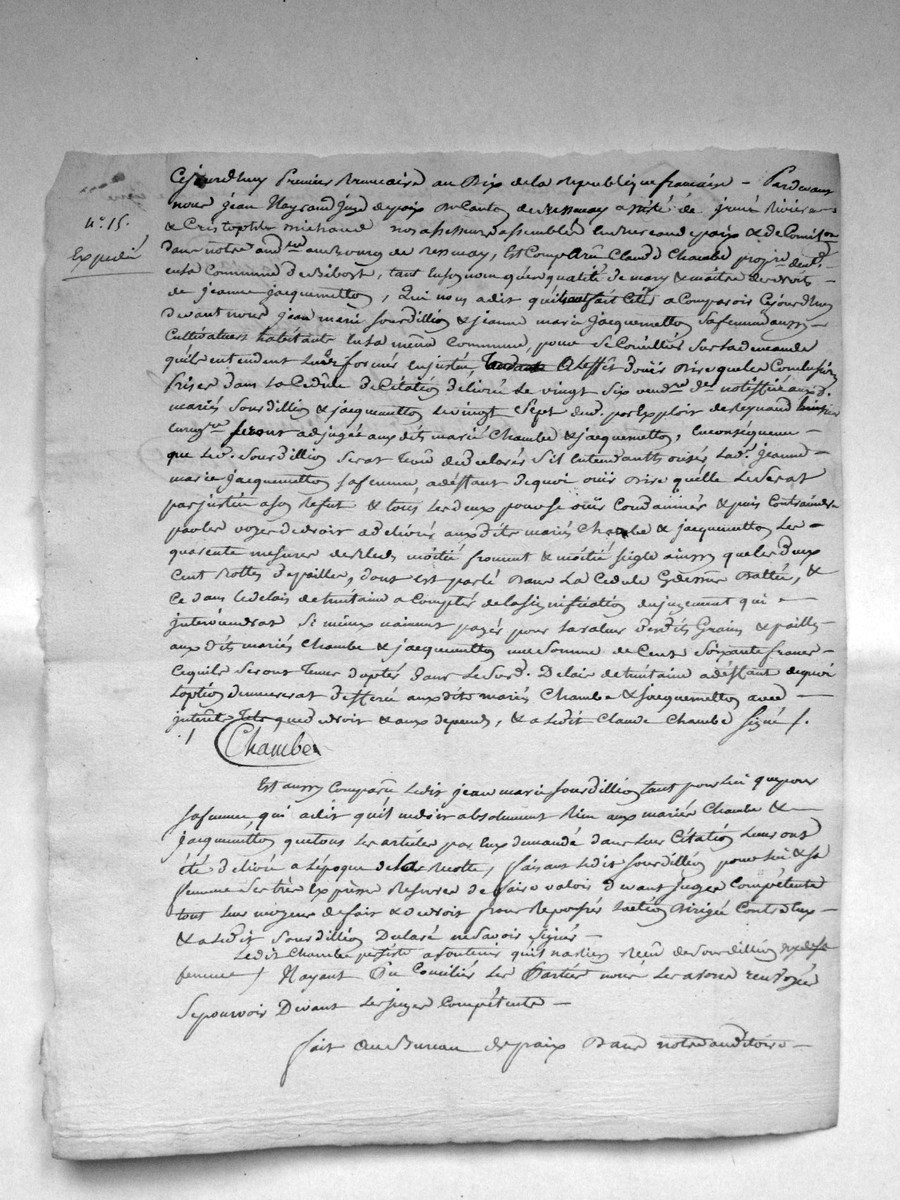 Cejourdhuy Premier Brumeaire an Dix de la Republique francaise – Pardevant
nous jean Nayrand juge de paix du Canton de Ressouay assisté de Rivier
n°. 15.
& Cristophle michaud nos assesseurs assemblés en bureau depaix & de Concil.on
Expédié
dans notre and.re au bourg de Ressouay, Est Comparu Claude Chambe propre dem.t
enla Commune de Ribost, tant enson nom qu'en qualité de mary & maître des droits
de jeanne jacquemetton, Qui nous adit quil Citer a Comparoir Cejourdhuy
devant nous jean marie Sourdillion & jeanne marie Jacquemetton Safemme aussy
Cultivateurs habitants enla même Commune, pour se Concillier Sur la demande
quils entendent leur former en justice, a Leffet d'ouir dire que les Conclusions
Prises dans la Cedule de Citation delivrée le vingt Six vend.re der notiffiée aux d.
mariés Sourdillion & jacquemetton le vingt Sept dud. par Exploit de Reynaud huissier
Seront adjugée aux dits marié Chambe & jacquemetton, en conséquence
que led. Sourdillion Serat tenu de declarer S'il entend authoriser lad. Jeanne
marie Jacquemetton Safemme, adeffaut dequoi ouir dire quelle Le Serat
par justice a son Refut & tous les deux pour se ouïr Condamner & puis Contraindre
par les voyes de droit a delivrer aux dits mariés Chambe & jacquemetton Les
quarente mesures de bled moitié froment & moitié Seigle ainssy que les deux
Cent bottes de pailler, dont est parlé dans La Cedule Cy dessus dattée, &
Ce dans ledelais de huitaine a Compter de la Signification du jugement qui
interviendrat Si mieux n'aiment payer pour la valeur desdits Grains & paille
aux dits mariés Chambe & jacquemetton une Somme de Cent Soixante francs
Cequils Seront tenus d'opter dans Le Sus d. Delais de huitaine adeffaut dequoi
Loption demeurerat defferé aux dits mariés Chambe & Jacquemetton avec
interêt tels que de droit & aux depends, & a Ledit Claude Chambe Signé /.
Chambe
Est aussy Comparu Ledit jean marie Sourdillion tant pour Lui que pour
Safemme, qui adit quil ne doit absolument Rien aux mariés Chambe &
Jacquemetton que tous les articles par Eux demandé dans leur Citation Leur ont
été delivré a L'époque de la Recolte, faisant Ledit Sourdillion pour Lui & sa
femme Les très Expresse Reserve de faire valoir devant juges Compétents
tout Leur moyens de fait & de droit pour Repousser Laction dirigée Contre Eux
& a Ledit Sourdillion Declaré ne Savoir Signer
Ledit Chambe persiste a Soutenir quil n'a Rien Reçu de Sourdillion de sa
femme / N'ayant Pu Concilier Les Parties nous Les avons renvoyée
Sepourvoir Devant Les juges Compétents –
fait au Bureau de paix Dans notre auditoire –